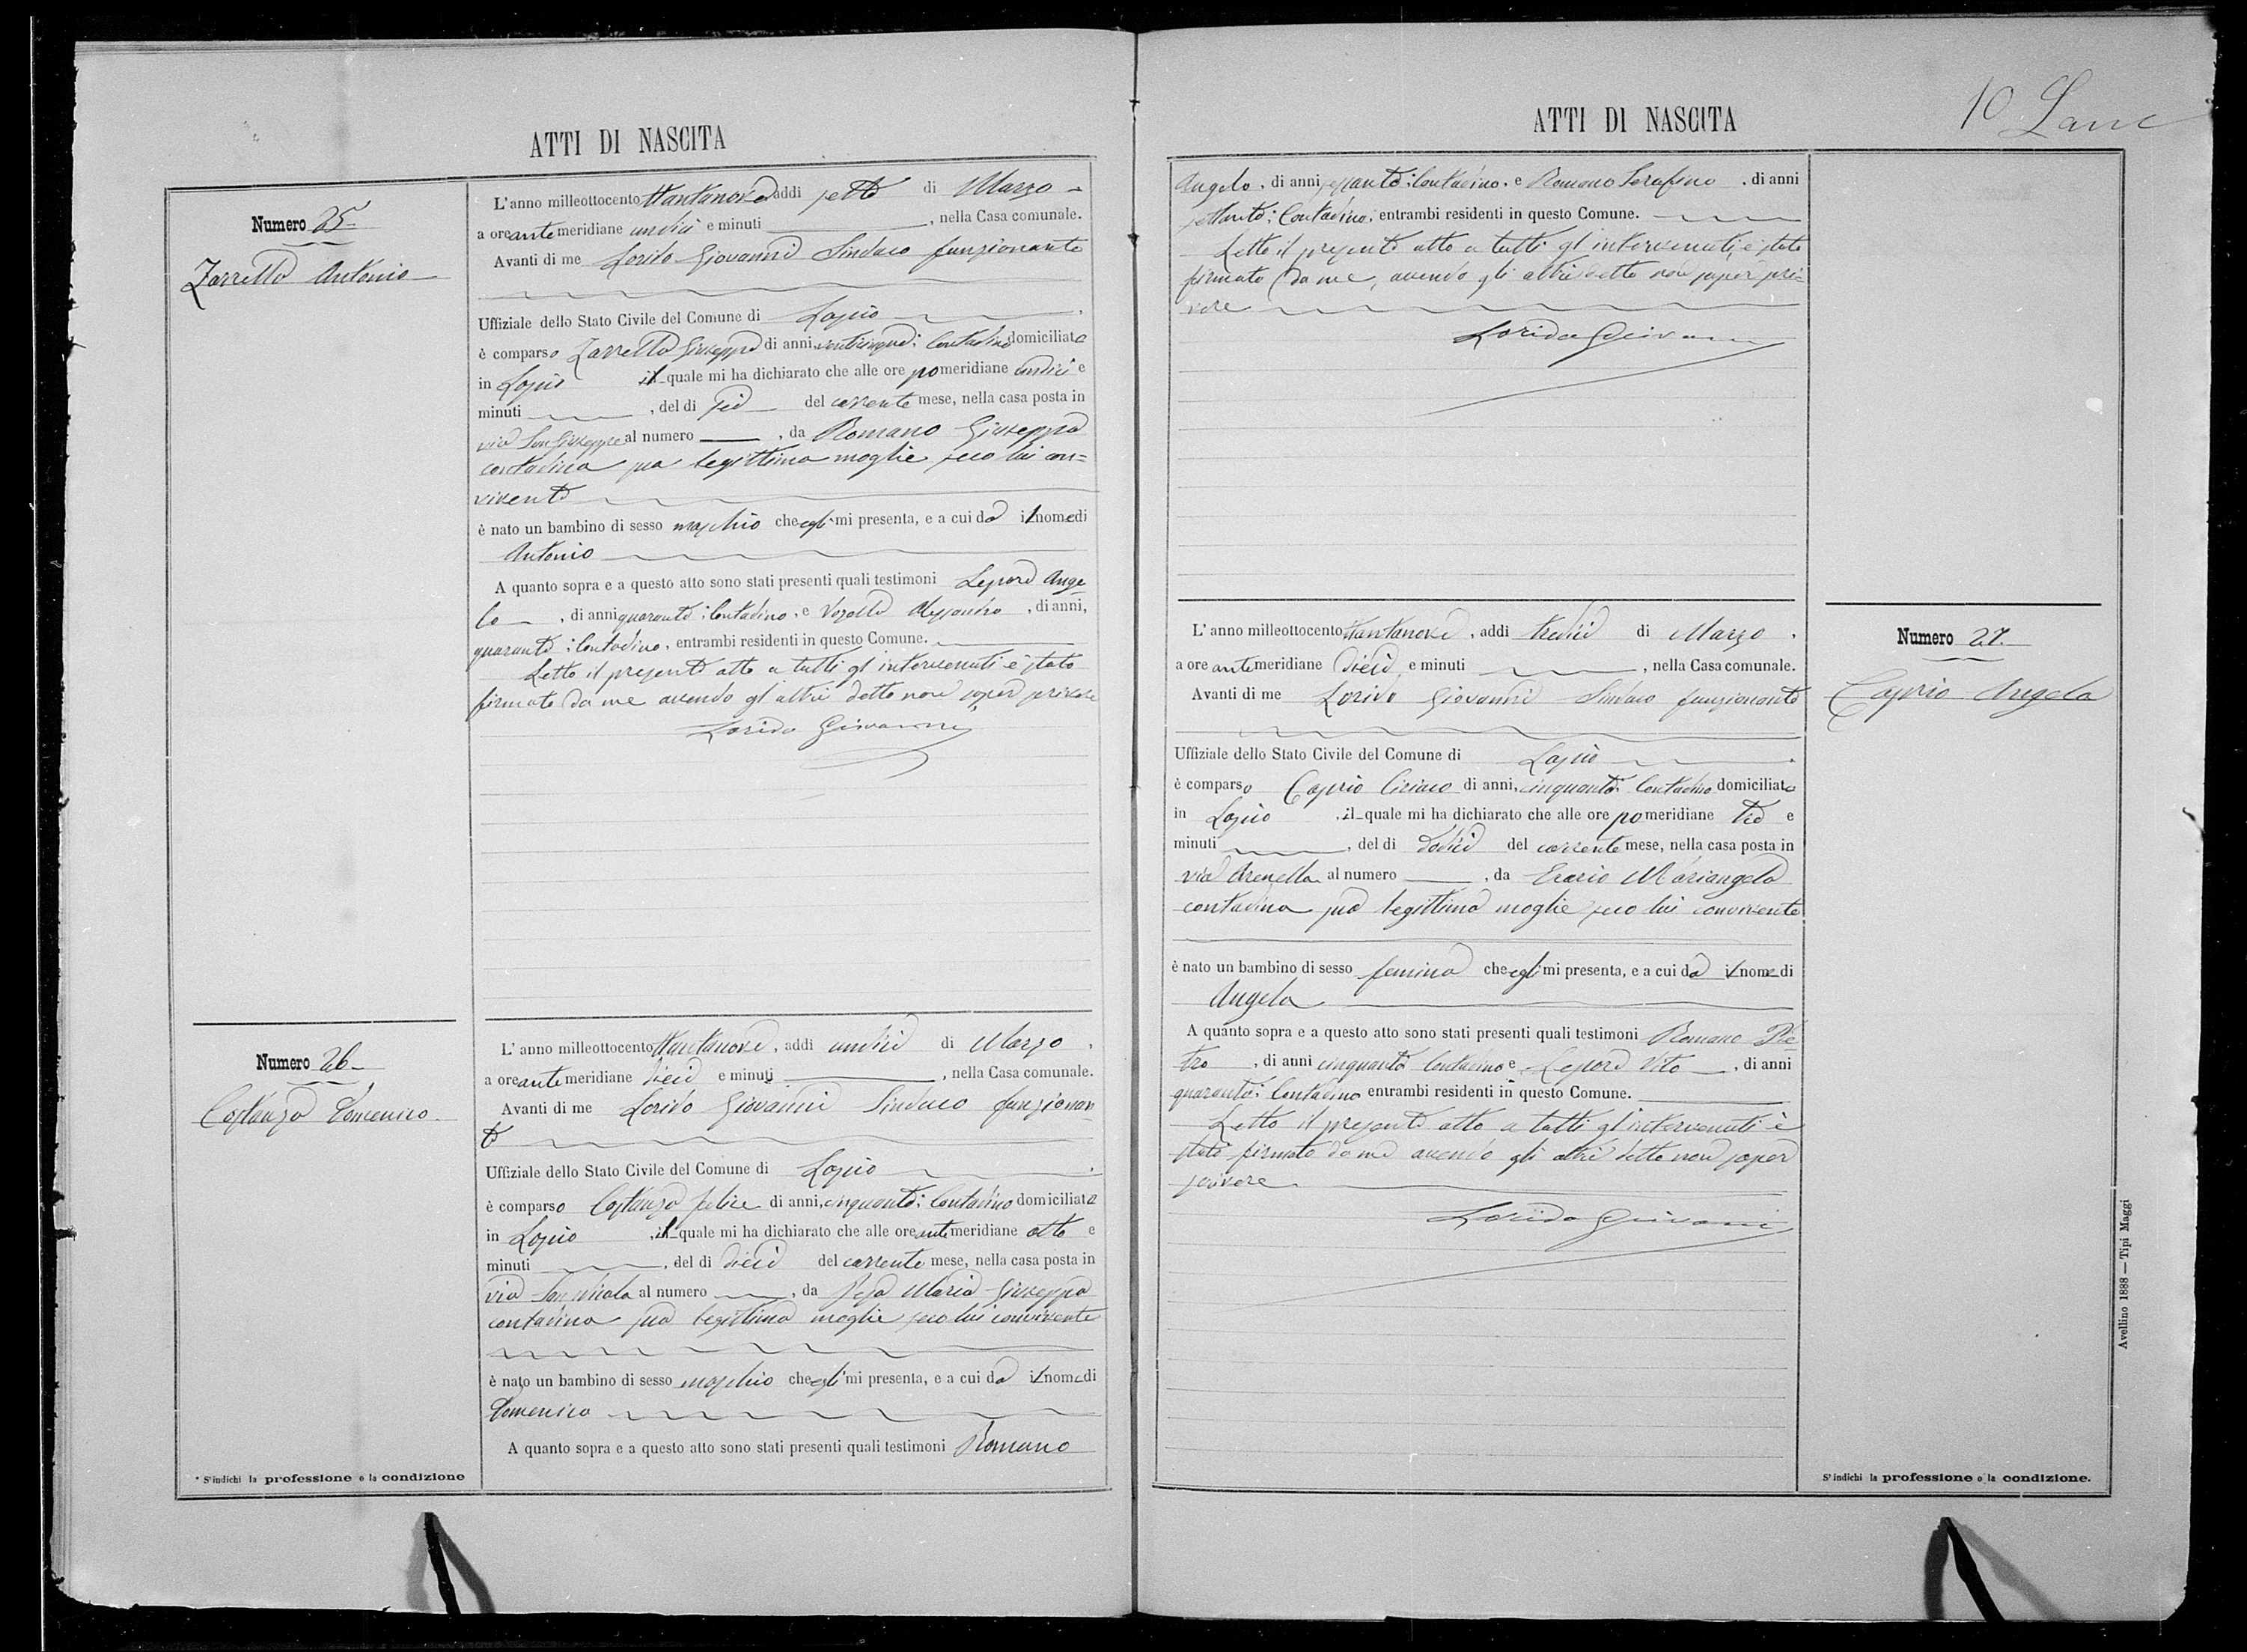 ATTI DI NASCITA
Numero 25
Zarrella Antonio
L'anno milleottocento ttantanove addi sette di Marzo
a ore antemeridiane undici e minuti , nella Casa comunale.
Avanti di me Lorido Giovanni Sindaco funzionante
Uffiziale dello Stato Civile del Comune di Lapio
è comparso Zarrella Giuseppe di anni venticinque; Contadino domiciliato
in Lapio il quale mi ha dichiarato che alle ore pomeridiane undici e
minuti , del di sei del corrente mese, nella casa posta in
via San Giuseppe al numero , da Romano Giuseppa
contadina sua legittima moglie seco lui con=
vivente
è nato un bambino di sesso maschio che egli mi presenta, e a cui da il nome di
Antonio
A quanto sopra e a questo atto sono stati presenti quali testimoni Lepore Ange
lo , di anni quaranta; Contadino, e Alessandro , di anni,
quaranta; Contadino, entrambi residenti in questo Comune.
Letto il presente atto a tutti gl'intervenuti è stato
firmato da me avendo gl'altri detto non saper scrivere
Lorido Giovanni
Numero 26
Costanzo Domenico
L'anno milleottocento ttantanove, addi undici di Marzo ,
a ore antemeridiane dieci e minuti , nella Casa comunale.
Avanti di me Lorido Giovanni Sindaco funzionan
te
Uffiziale dello Stato Civile del Comune di Lapio
è comparso Costanzo Felice di anni, cinquanta; Contadino domiciliato
in Lapio , il quale mi ha dichiarato che alle ore antemeridiane otto e
minuti , del di dieci del corrente mese, nella casa posta in
via San Nicola al numero , da Maria Giuseppa
contadina sua legittima moglie seco lui convivente
è nato un bambino di sesso maschio che egli mi presenta, e a cui da il nome di
Domenico
A quanto sopra e a questo atto sono stati presenti quali testimoni Romano
* S'indichi la professione o la condizione
ATTI DI NASCITA
10
Angelo, di anni sessanta; Contadino, e Romano Serafino , di anni
settanta; Contadino, entrambi residenti in questo Comune.
Letto il presente atto a tutti gl'intervenuti, è stato
firmato da me, avendo gli altri detto non saper scri=
vere
Lorido Giovanni
L'anno milleottocento ttantanove, addi tredici di Marzo ,
a ore antemeridiane dieci e minuti , nella Casa comunale.
Avanti di me Lorido Giovanni Sindaco funzionante
Uffiziale dello Stato Civile del Comune di Lapio
è comparso Caprio Ciriaco di anni, cinquanta; Contadino domiciliato
in Lapio , il quale mi ha dichiarato che alle ore pomeridiane tre e
minuti , del di dodici del corrente mese, nella casa posta in
via Arenella al numero , da Erario Mariangela
contadina sua legittima moglie seco lui convivente
è nato un bambino di sesso femina che egli mi presenta, e a cui da il nome di
Angela
A quanto sopra e a questo atto sono stati presenti quali testimoni Romano Pie
tro , di anni cinquanta contadino e Lepore Vito , di anni
quaranta; Contadino entrambi residenti in questo Comune.
Letto il presente atto a tutti gl'intervenuti è
stato firmato da me avendo gli altri detto non saper
scrivere
Lorido Giovanni
Numero 27.
Caprio Angela
S'indichi la professione o la condizione.
Avellino 1888 — Tipi Maggi